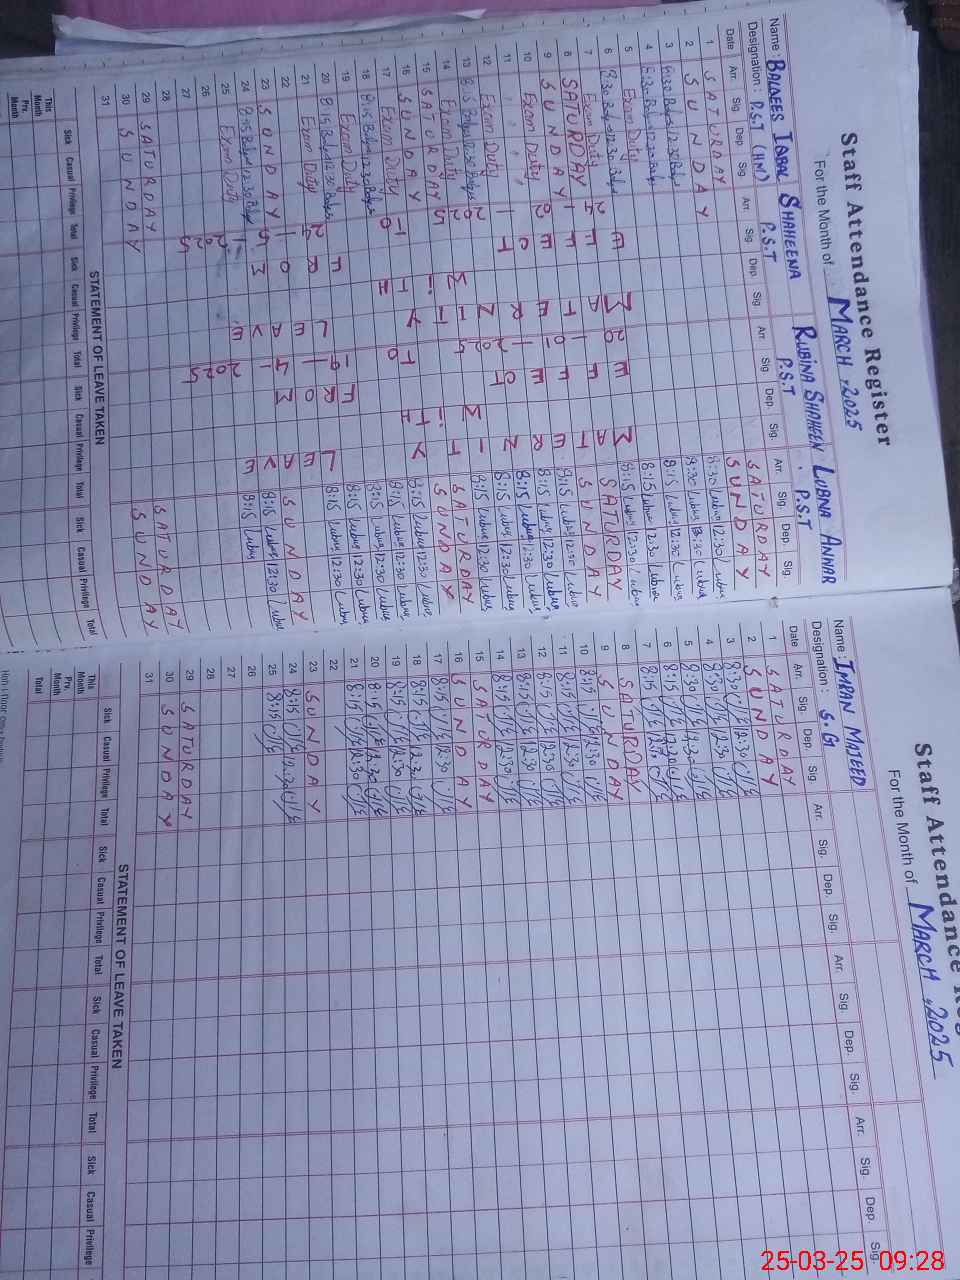 Staff Attendance Register
For the Month of MARCH, 2025
Name: BALQEES IQBAL SHAHEENA RUBINA SHAHEEN LUBNA ANWAR
Designation: P.S.T (HM) P.S.T P.S.T P.S.T
Date Arr. Sig. Dep. Sig. Arr. Sig. Dep. Sig. Arr. Sig. Dep. Sig. Arr. Sig. Dep. Sig.
1 SATURDAY SATURDAY
2 SUNDAY SUNDAY
3 8:30 12:30 8:30 Lubna 12:30 Lubna
4 8:30 8:30 Lubna 12:30 Lubna
5 Exam Duty 8:15 Lubna 12:30 Lubna
6 8:30 12:30 8:15 Lubna 12:30 Lubna
7 Exam Duty 8:15 Lubna 12:30 Lubna
8 SATURDAY SATURDAY
9 SUNDAY SUNDAY
10 Exam Duty 8:15 Lubna 12:30 Lubna
11 " " 8:15 Lubna 12:30 Lubna
12 Exam Duty 8:15 Lubna 12:30 Lubna
13 8:15 12:30 8:15 Lubna 12:30 Lubna
14 Exam Duty 8:15 Lubna 12:30 Lubna
15 SATURDAY SATURDAY
16 SUNDAY SUNDAY
17 Exam Duty 8:15 Lubna 12:30 Lubna
18 8:15 12:30 8:15 Lubna 12:30 Lubna
19 Exam Duty 8:15 Lubna 12:30 Lubna
20 8:15 12:30 8:15 Lubna 12:30 Lubna
21 Exam Duty 8:15 Lubna 12:30 Lubna
22
23 SUNDAY SUNDAY
24 8:15 12:30 8:15 Lubna 12:30 Lubna
25 Exam Duty 8:15 Lubna
26
27
28
29 SATURDAY SATURDAY
30 SUNDAY SUNDAY
31
MATERNITY LEAVE
WITH EFFECT FROM
24-02-2025 TO 24-5-2025
MATERNITY LEAVE
WITH EFFECT FROM
20-01-2025 TO 19-4-2025
STATEMENT OF LEAVE TAKEN
Sick Casual Privilege Total Sick Casual Privilege Total Sick Casual Privilege Total Sick Casual Privilege Total
This Month
Prv. Month
Staff Attendance Reg
For the Month of MARCH, 2025
Name: IMRAN MAJEED
Designation: S.G
Date Arr. Sig. Dep. Sig. Arr. Sig. Dep. Sig. Arr. Sig. Dep. Sig. Arr. Sig. Dep. Sig.
1 SATURDAY
2 SUNDAY
3 8:30 12:30
4 8:30 12:30
5 8:30 12:30
6 8:15 12:30
7 8:15 12:30
8 SATURDAY
9 SUNDAY
10 8:15 12:30
11 8:15 12:30
12 8:15 12:30
13 8:15 12:30
14 8:15 12:30
15 SATURDAY
16 SUNDAY
17 8:15 12:30
18 8:15 12:30
19 8:15 12:30
20 8:15 12:30
21 8:15 12:30
22
23 SUNDAY
24 8:15 12:30
25 8:15
26
27
28
29 SATURDAY
30 SUNDAY
31
STATEMENT OF LEAVE TAKEN
Sick Casual Privilege Total Sick Casual Privilege Total Sick Casual Privilege Total Sick Casual Privilege
This Month
Prv. Month
Total
25-03-25 09:28